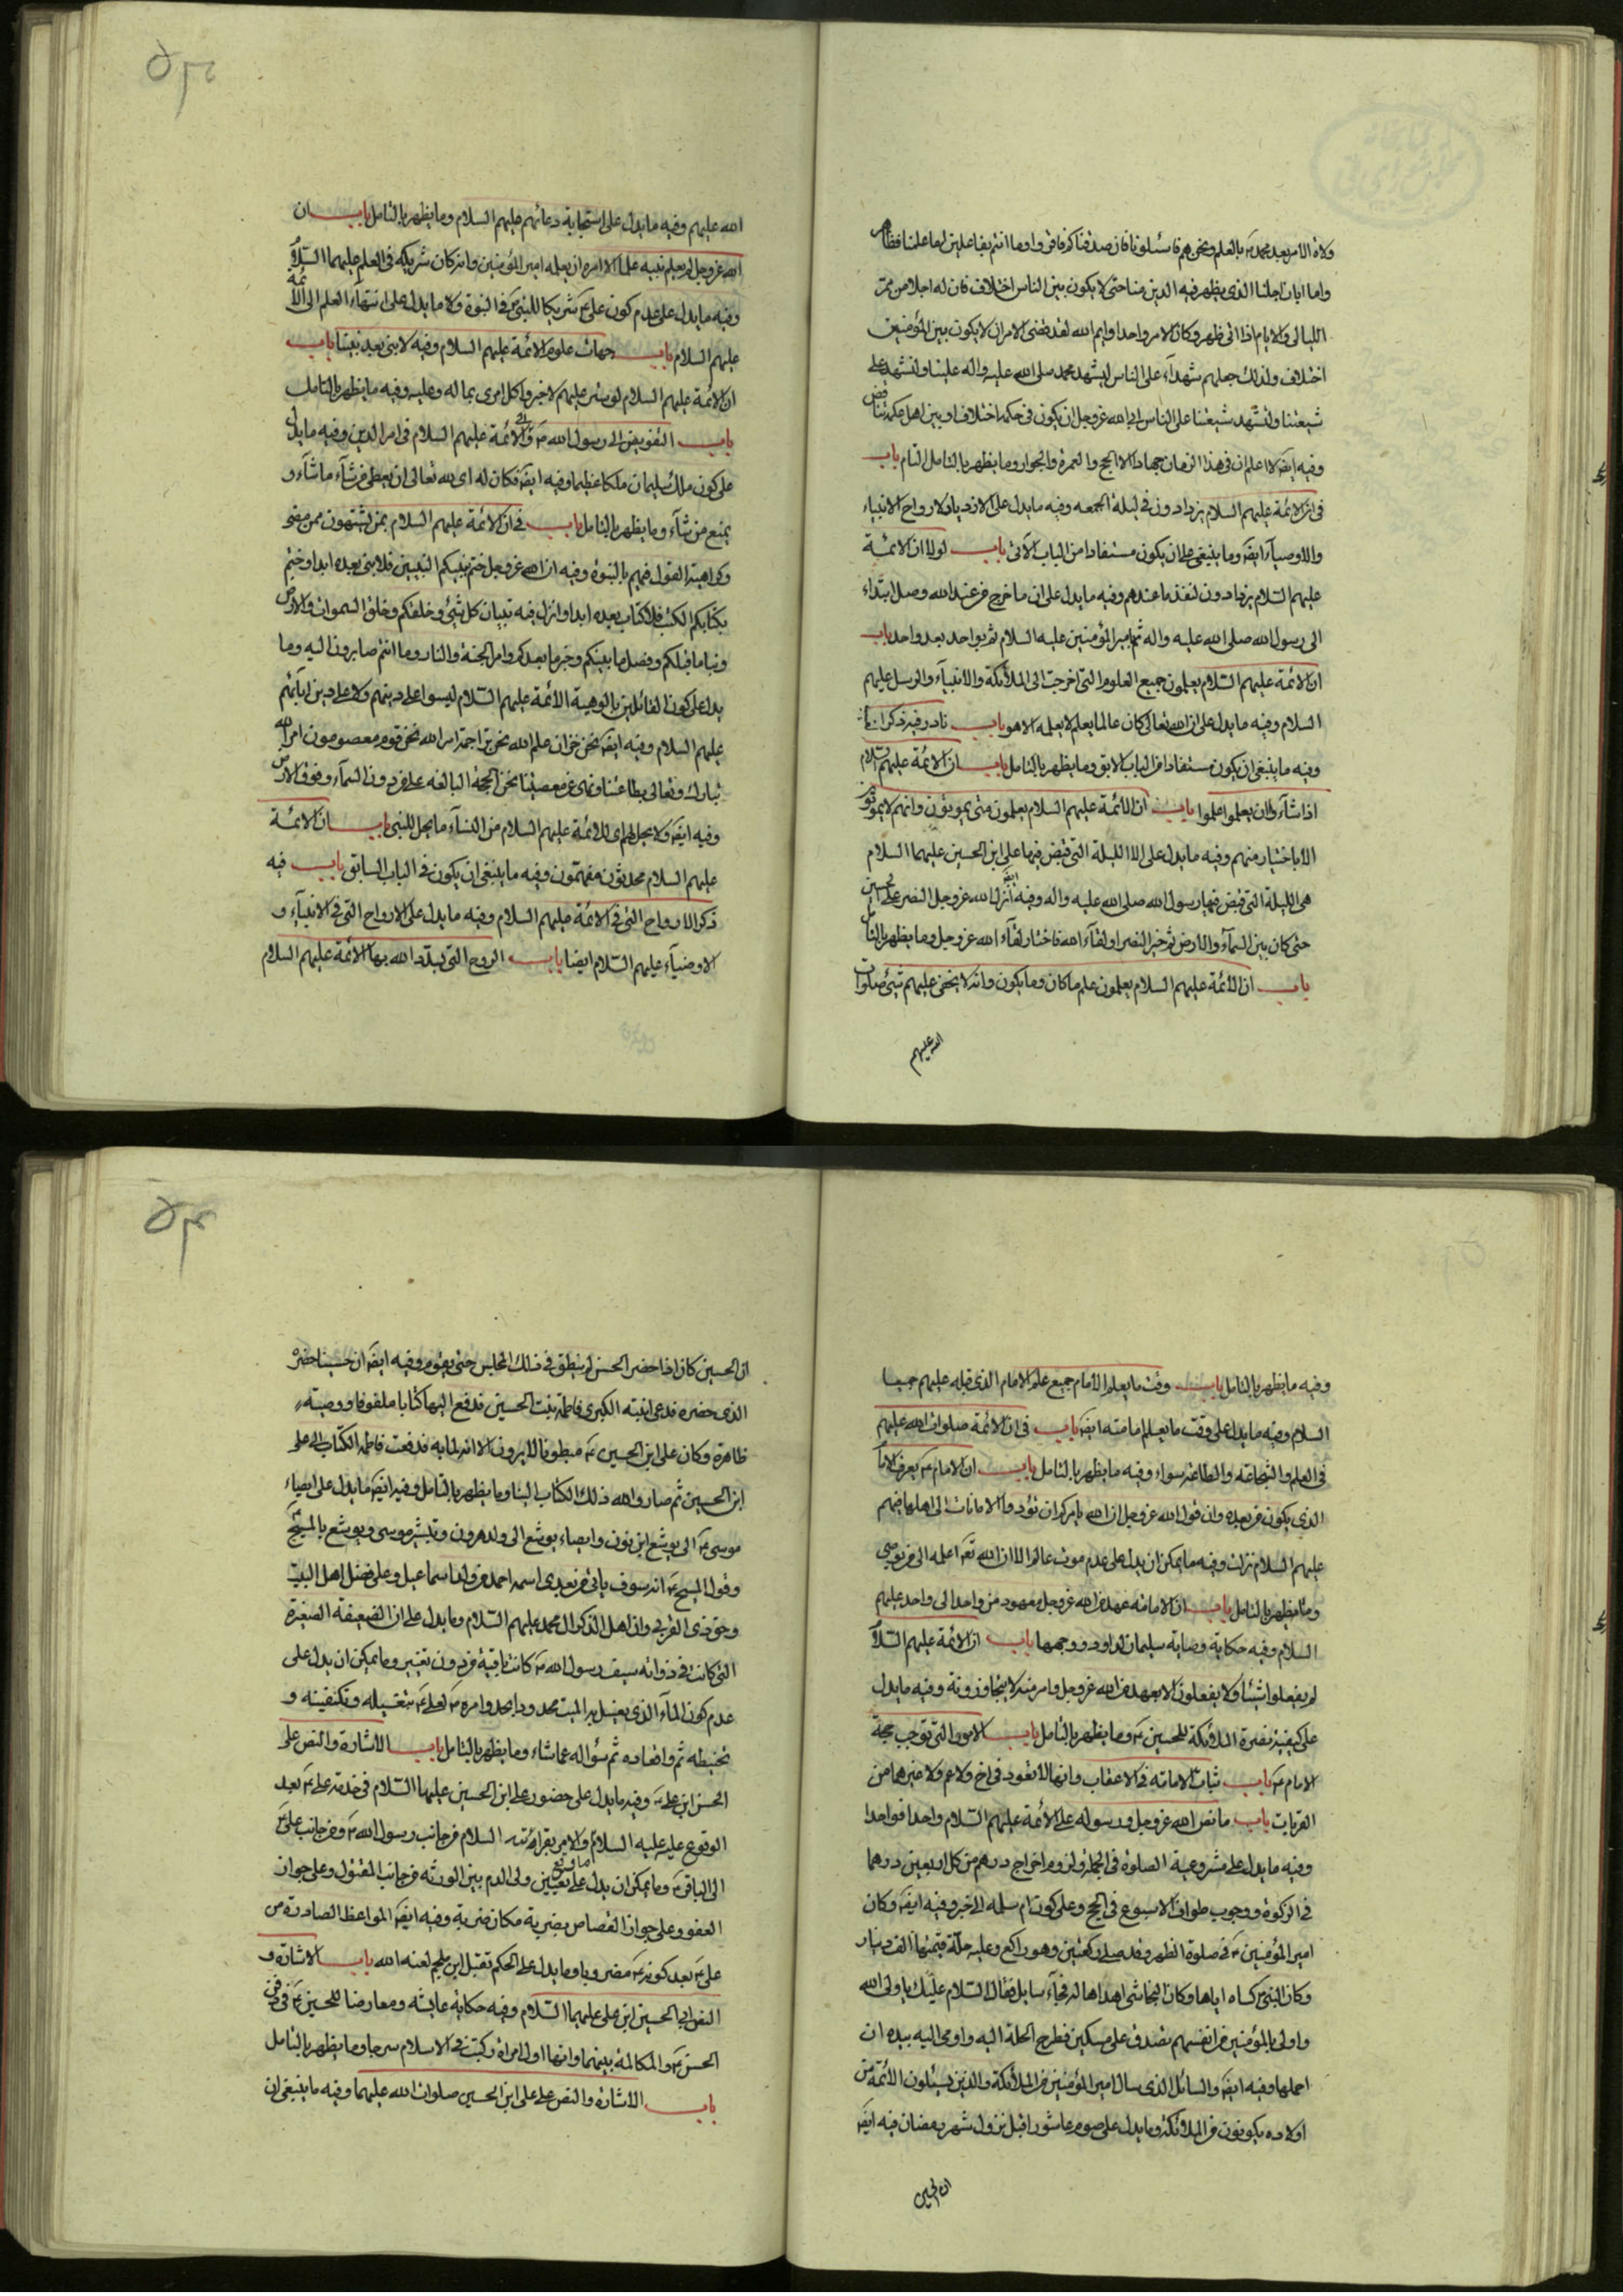 ولاة الامر بعد محمد ص بالعلم ونحن هم فاسئلونا فان صدقناكم فاقروا وما انتم بفاعلين اما علمنا فظاهر
واما ابان اجلنا الذى يظهر فيه الدين مناحتى لا يكون بين الناس اختلاف فان له اجلا من ممر
الليالى والايام اذا اتى ظهر وكان الامر واحدا وايم الله لقد قضى الامر ان لا يكون بين المؤمنين
اختلاف ولذلك جعلهم شهداء على الناس ليشهد محمد صلى الله عليه واله علينا ولنشهد على
شيعتنا ولتشهد شيعتنا على الناس ابى الله عز وجل ان يكون فى حكمه اختلاف او بين اهل علمه تناقض
وفيه ايضه لا اعلم ان فى هذا الزمان جهادا الا الحج والعمرة والجوار وما يظهر بالتامل التام باب
فى ان الائمة عليهم السلام يزدادون فى ليلة الجمعه وفيه ما يدل على الازدياد لارواح الانبياء
والاوصياء ايضه وما ينبغى ان يكون مستفادا من الباب الآتى باب لولا ان الائمة
عليهم السلام يزدادون لنفد ما عندهم وفيه ما يدل على ان ما خرج من عند الله وصل ابتداء
الى رسول الله صلى الله عليه واله ثم بامير المؤمنين عليه السلام ثم بواحد بعد واحد باب
ان الائمة عليهم السلام يعلمون جميع العلوم التى اخرجت الى الملائكة والانبياء والرسل عليهم
السلام وفيه ما يدل على ان الله تعالى كان عالما بعلم لا يعلمه الا هو باب نادر فيه ذكر
وفيه ما ينبغى ان يكون مستفادا من الباب الابق وما يظهر بالتامل باب ان الائمة عليهم السلام
اذا شاءوا ان يعلموا علموا باب ان الائمة عليهم السلام يعلمون متى يموتون وانهم لا يموتون
الا باختيار منهم وفيه ما يدل على ان الليلة التى قبض فيها على ابن الحسين عليهما السلام
هى الليلة التى قبض فيها رسول الله صلى الله عليه واله وفيه ايضه انزل الله عز وجل النصر على الحسين
حتى كان بين السماء والارض ثم خير النصر او لقاء الله فاختار لقاء الله عز وجل وما يظهر بالتامل
باب ان الائمة عليهم السلام يعلمون علم ما كان وما يكون وانه لا يخفى عليهم شئ صلوات
الله عليهم
الله عليهم وفيه ما يدل على استجابة دعائهم عليهم السلام وما يظهر بالتامل باب ان
الله عز وجل لم يعلم نبيه علما الا امره ان يعلمه امير المؤمنين وانه كان شريكه فى العلم عليهما السلام
وفيه ما يدل على عدم كون على ع شريكا للنبى ص فى النبوة ولا ما يدل على انتهاء العلم الى الائمة
عليهم السلام باب جهات علوم الائمة عليهم السلام وفيه لا نبى بعد نبينا باب
ان الائمة عليهم السلام لو ستر عليهم لاخبروا كل امرئ بما له وعليه وفيه ما يظهر بالتامل
باب التفويض الى رسول الله ص والى الائمة عليهم السلام فى امر الدين وفيه ما يدل
على كون ملك سليمان ملكا عظيما وفيه ايضه فكان له اى لله تعالى ان يعطى من شاء ما شاء و
يمنع من شاء وما يظهر بالتامل باب فى ان الائمة عليهم السلام بمن يشبهون ممن مضى
وكراهية القول فيهم بالنبوة وفيه ان الله عز وجل ختم بنبيكم النبيين فلا نبى بعده ابدا وختم
بكتابكم الكتب فلا كتاب بعده ابدا وانزل فيه تبيان كل شئ وخلقكم وخلق السموات والارض
ونبا ما قبلكم وفصل ما بينكم وخبر ما بعدكم وامر الجنة والنار وما انتم صايرون اليه وما
يدل على كون القائلين بالوهية الائمة عليهم السلام ليسوا على دينهم ولا على دين ابائهم
عليهم السلام وفيه ايضه نحن خزان علم الله نحن تراجمة امر الله نحن قوم معصومون امر الله
تبارك وتعالى بطاعتنا ونهى عن معصيتنا نحن الحجة البالغه على من دون السماء وفوق الارض
وفيه ايضه ولا يحل لهم اى للائمة عليهم السلام من النساء ما يحل للنبى باب ان الائمة
عليهم السلام محدثون مفهمون وفيه ما ينبغى ان يكون فى الباب السابق باب فيه
ذكر الارواح التى فى الائمة عليهم السلام وفيه ما يدل على الارواح التى فى الانبياء و
الاوصياء عليهم السلام ايضا باب الروح التى يسدد الله بها الائمة عليهم السلام
وفيه ما يظهر بالتامل باب وقت ما يعلم الامام جميع علم الامام الذى قبله عليهم جميعا
السلام وفيه ما يدل على وقت ما يعلم امامته ايضه باب فى ان الائمة صلوات الله عليهم
فى العلم والشجاعة والطاعة سواء وفيه ما يظهر بالتامل باب ان الامام ع يعرف الامام
الذى يكون من بعده وان قول الله عز وجل ان الله يامركم ان تؤدوا الامانات الى اهلها فيهم
عليهم السلام نزلت وفيه ما يمكن ان يدل على عدم موت عالم الا ان الله تعه اعلمه الى من يوصى
وما يظهر بالتامل باب ان الامامة عهد من الله عز وجل معهود من واحد الى واحد عليهم
السلام وفيه حكاية وصاية سليمان لداود ووجهها باب ان الائمة عليهم السلام
لم يفعلوا شيئا ولا يفعلون الا بعهد من الله عز وجل وامر منه لا يتجاوزونه وفيه ما يدل
على كيفية نصرة الملائكة للحسين ع وما يظهر بالتامل باب الامور التى توجب حجة
الامام ع باب ثبات الامامة فى الاعقاب وانها لا تعود فى اخ ولا عم ولا غيرهما من
القرابات باب ما نص الله عز وجل ورسوله على الائمة عليهم السلام واحدا فواحدا
وفيه ما يدل على مشروعية الصلوة فى الجملة ولزوم اخراج درهم من كل اربعين درهما
فى الزكوة ووجوب طواف الاسبوع فى الحج وعلى كون ام سلمه الى خير وفيه ايضه وكان
امير المؤمنين ع فى صلوة الظهر وقد صلى ركعتين وهو راكع وعليه حلة قيمتها الف دينار
وكان النبى ص كساه اياها وكان النجاشى اهداها له فجاء سايل فقال السلام عليك يا ولى الله
واولى بالمؤمنين من انفسهم تصدق على مسكين فطرح الحلة اليه واومى اليه بيده ان
احملها وفيه ايضه والسائل الذى سال امير المؤمنين من الملائكة والذين يسئلون الائمة من
اولاده يكونون من الملائكة وما يدل على صوم عاشورا قبل نزول شهر رمضان فيه ايضه
ان الحسين
ان الحسين كان اذا حضر الحسن لم ينطق فى ذلك المجلس حتى يقوم وفيه ايضه ان حسينا حضره
الذى حضره فدعى ابنته الكبرى فاطمة بنت الحسين فدفع اليها كتابا ملفوفا ووصية
ظاهرة وكان على ابن الحسين ع مبطونا لا يرون الا انه لما به فدفعت فاطمة الكتاب الى على
ابن الحسين ثم صار والله ذلك الكتاب الينا وما يظهر بالتامل وفيه ايضه ما يدل على ايصاء
موسى ع الى يوشع ابن نون وايصاء يوشع الى ولد هرون وتبشير موسى ويوشع بالمسيح
وقول المسيح ع انه سوف ياتى من بعدى اسمه احمد من ولد اسماعيل وعلى فضل اهل البيت
وحق ذى القربى وان اهل الذكر ال محمد عليهم السلام وما يدل على ان الصحيفة الصغيرة
التى كانت فى ذوابة سيف رسول الله ص كانت باقية من دون تغيير وما يمكن ان يدل على
عدم كون الماء الذى يغسل به الميت محدودا بحد وامره ص لعلى ع بتغسيله وتكفينه و
تحنيطه ثم واقعاده ثم سؤاله عما شاء وما يظهر بالتامل باب الاشارة والنص على
الحسن ابن على ع وفيه ما يدل على حضور على ابن الحسين عليهما السلام فى خدمة على ع بعد
الوقوع عليه عليه السلام والامر بقراءته السلام من جانب رسول الله ص ومن جانب على ع
الى الباقر ع وما يمكن ان يدل على تعيين ولى الدم بين الورثه من جانب المقتول وعلى جواز
العفو وعلى جواز القصاص بضربة مكان ضربة وفيه ايضه المواعظ الصادرة من
على ع بعد كونه ع مضروبا وما يدل على الحكم بقتل ابن ملجم لعنه الله باب الاشارة و
النص الى الحسين ابن على عليهما السلام وفيه حكاية عايشه ومعارضتها للحسين ع فى دفن
الحسن ع والمكالمة بينهما وانها اول امراة ركبت فى الاسلام سرجا وما يظهر بالتامل
باب الاشارة والنص على على ابن الحسين صلوات الله عليهما وفيه ما ينبغى ان